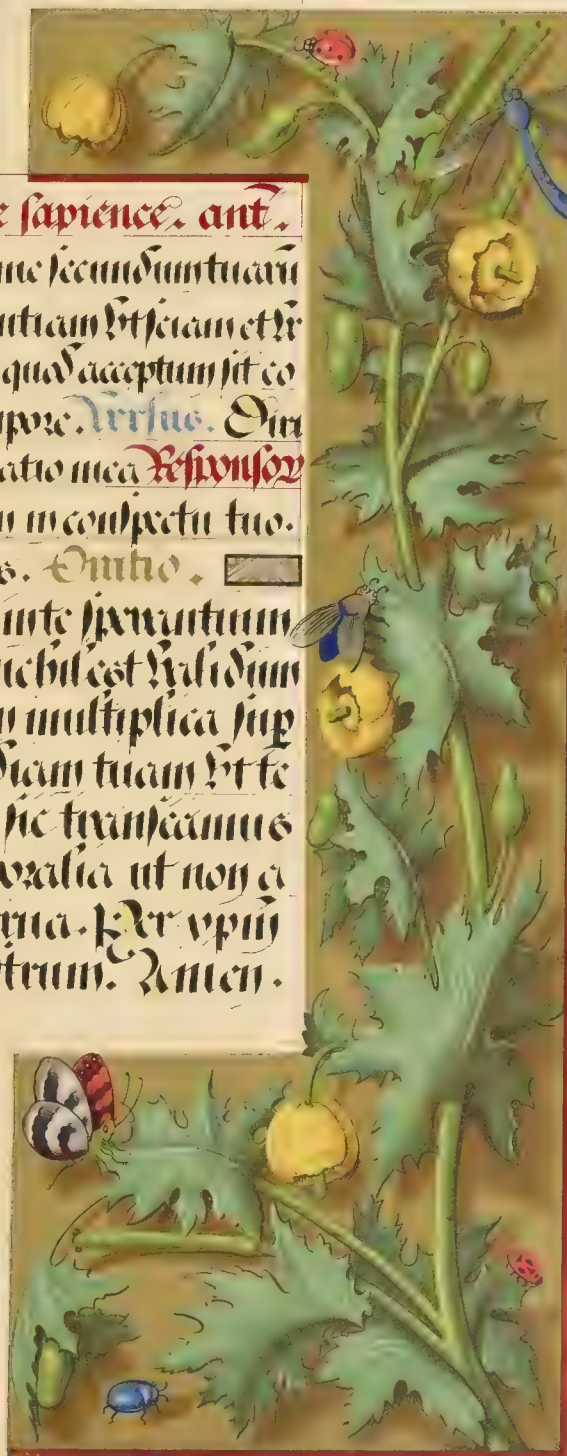 e sapience. ant.
me secundum tuam
ntiam vt sciam et
quod acceptum sit co
pore. Versus. Dni
atio mea Responsor
n in conspectu tuo.
s. Oratio.
in te sperantium
nichil est validum
m multiplica sup
diam tuam vt te
sic transeamus
oralia ut non a
rna. Per xpm
strum. Amen.